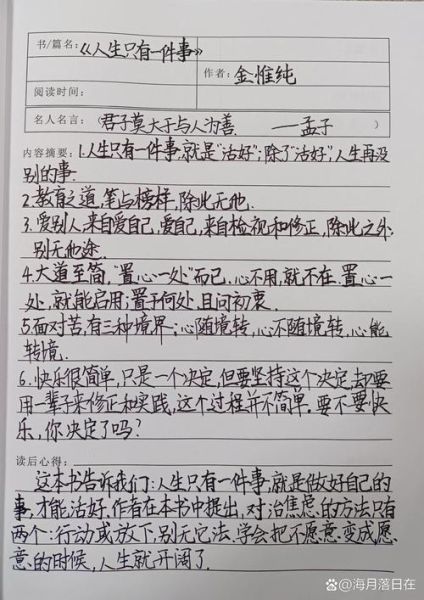 书/篇名：《人生只有一件事》
作者：金惟纯
阅读时间：
名人名言：（君子莫大于与人为善. ——孟子 ）
内容摘要：1.人生只有一件事,就是"活好";除了"活好",人生再没
别的事.
2.教育之道,笔与榜样,除此无他.
3.爱别人,来自爱自己,爱自己,来自检视和修正,除此之外,
别无他途.
4.大道至简,"置心一处"而已,心不用,就不在.置心一
处,就能启用;置于何处,且问初衷.
5.面对苦,有三种境界:心随境转,心不随境转,心能
转境.
6.快乐很简单,只是一个决定,但要坚持这个决定,却要
用一辈子来修正和实践,这个过程并不简单,要不要快
乐,你决定了吗?
读后心得：
这本书告诉我们:人生只有一件事:就是做好自己的
事,才能活好.作者在本书中提出,对治焦虑的方法只有
两个:行动或放下,别无它法.学会把不愿意变成愿
意的时候,人生就开阔了.
@海月落日在